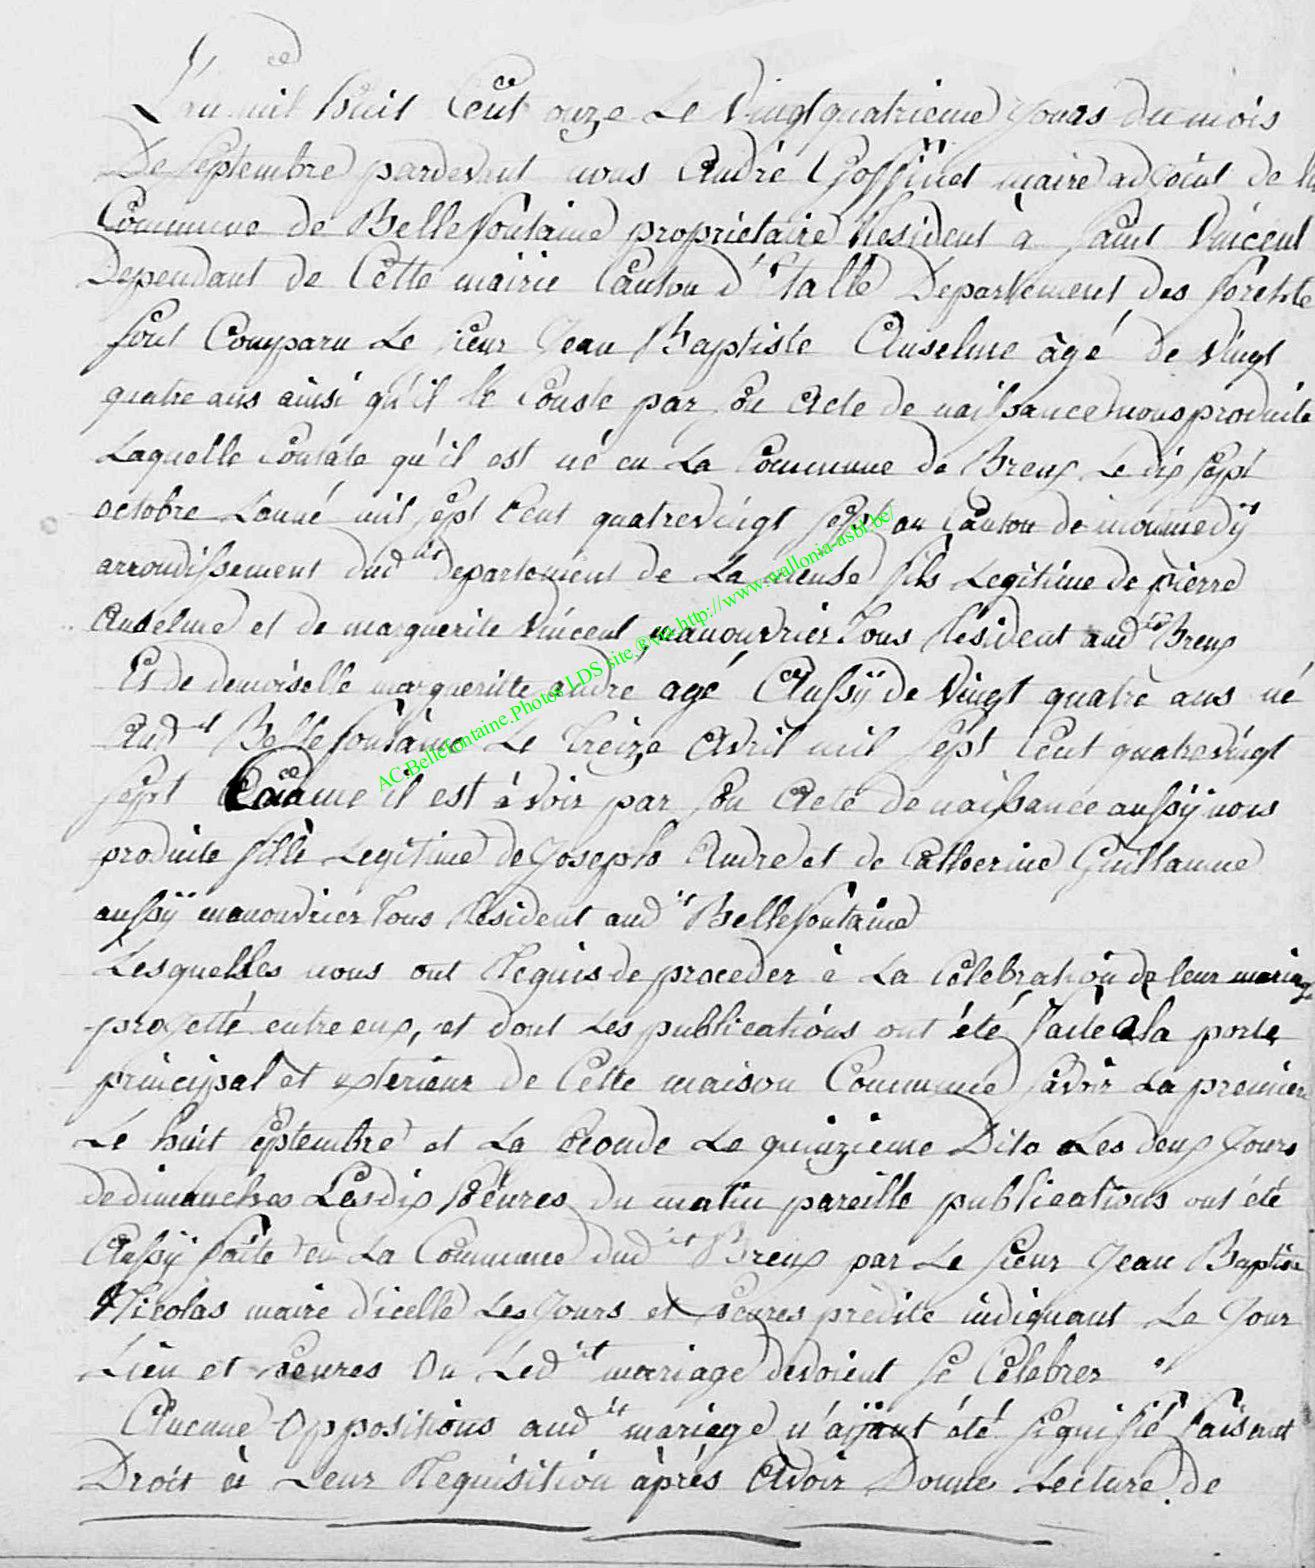 L'an mil huit Cent onze Le vingtquatrieme Jours du mois
De Septembre pardevant nous André Goffinet maire adjoint de la
Commune de Bellefontaine propriétaire Résident à Saint Vincent
Dependant de Cette mairie Canton d'Etalle Departement des forêtte
sont Comparu Le sieur Jean Baptiste Anselme àgé de vingt
quatre ans ainsi qu'il Conste par son Acte de naissance nous produite
Laquelle Constate qu'il est né en La Commune de Breux Le dix Sept
octobre Lanné mil sept Cent quatrevingt sept au Canton de monmedÿ
arrondissement dudit departement de La meuse fils Legitime de pierre
Anselme et de marguerite Vincent, manouvrier Tous Résident audit Breux
Et de demoiselle margueritte andre agé Aussÿ de vingt quatre ans né
Audit Bellefontaine Le Treize Avril mil sept Cent quatrevingt
sept Comme il est à voir par son Acte de naissance aussÿ nous
produite fille Legitime de Joseph Andre et de Catherine Guillaume
aussÿ manouvrier Tous Résident audit Bellefontaine
Lesquelles nous ont Requis de proceder à La Célébration de leur mariag
projetté entre eux, et dont Les publications ont été faite a la porte
principal et exterieur de Cette maison Commune savoir La premier
Le huit Septembre et La seconde Le quinzieme Dito Les deux Jours
de dimanches Les dix héures du matin pareille publications ont été
Aussÿ faite en La Commune dudit Breux par Le sieur Jean Baptise
Nicolas maire d'icelle Les Jours et heures prèdite indiquant Le Jour
Lieu et heures ou Ledit mariage devoient se Célebrer
Aucune oppositions audit mariage n'aÿant été signifié faisant
Droit à Leur Requisition àprès Avoir Donné Lecture de
AC.Bellefontaine.Photos LDS site @ via http://www.wallonia-asbl.be/